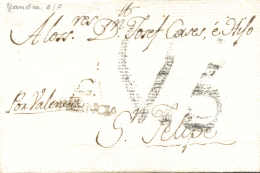 Gandia
A los S.res D.n Josef Cases, é Hijo
Por Valencia
S.n Felipe